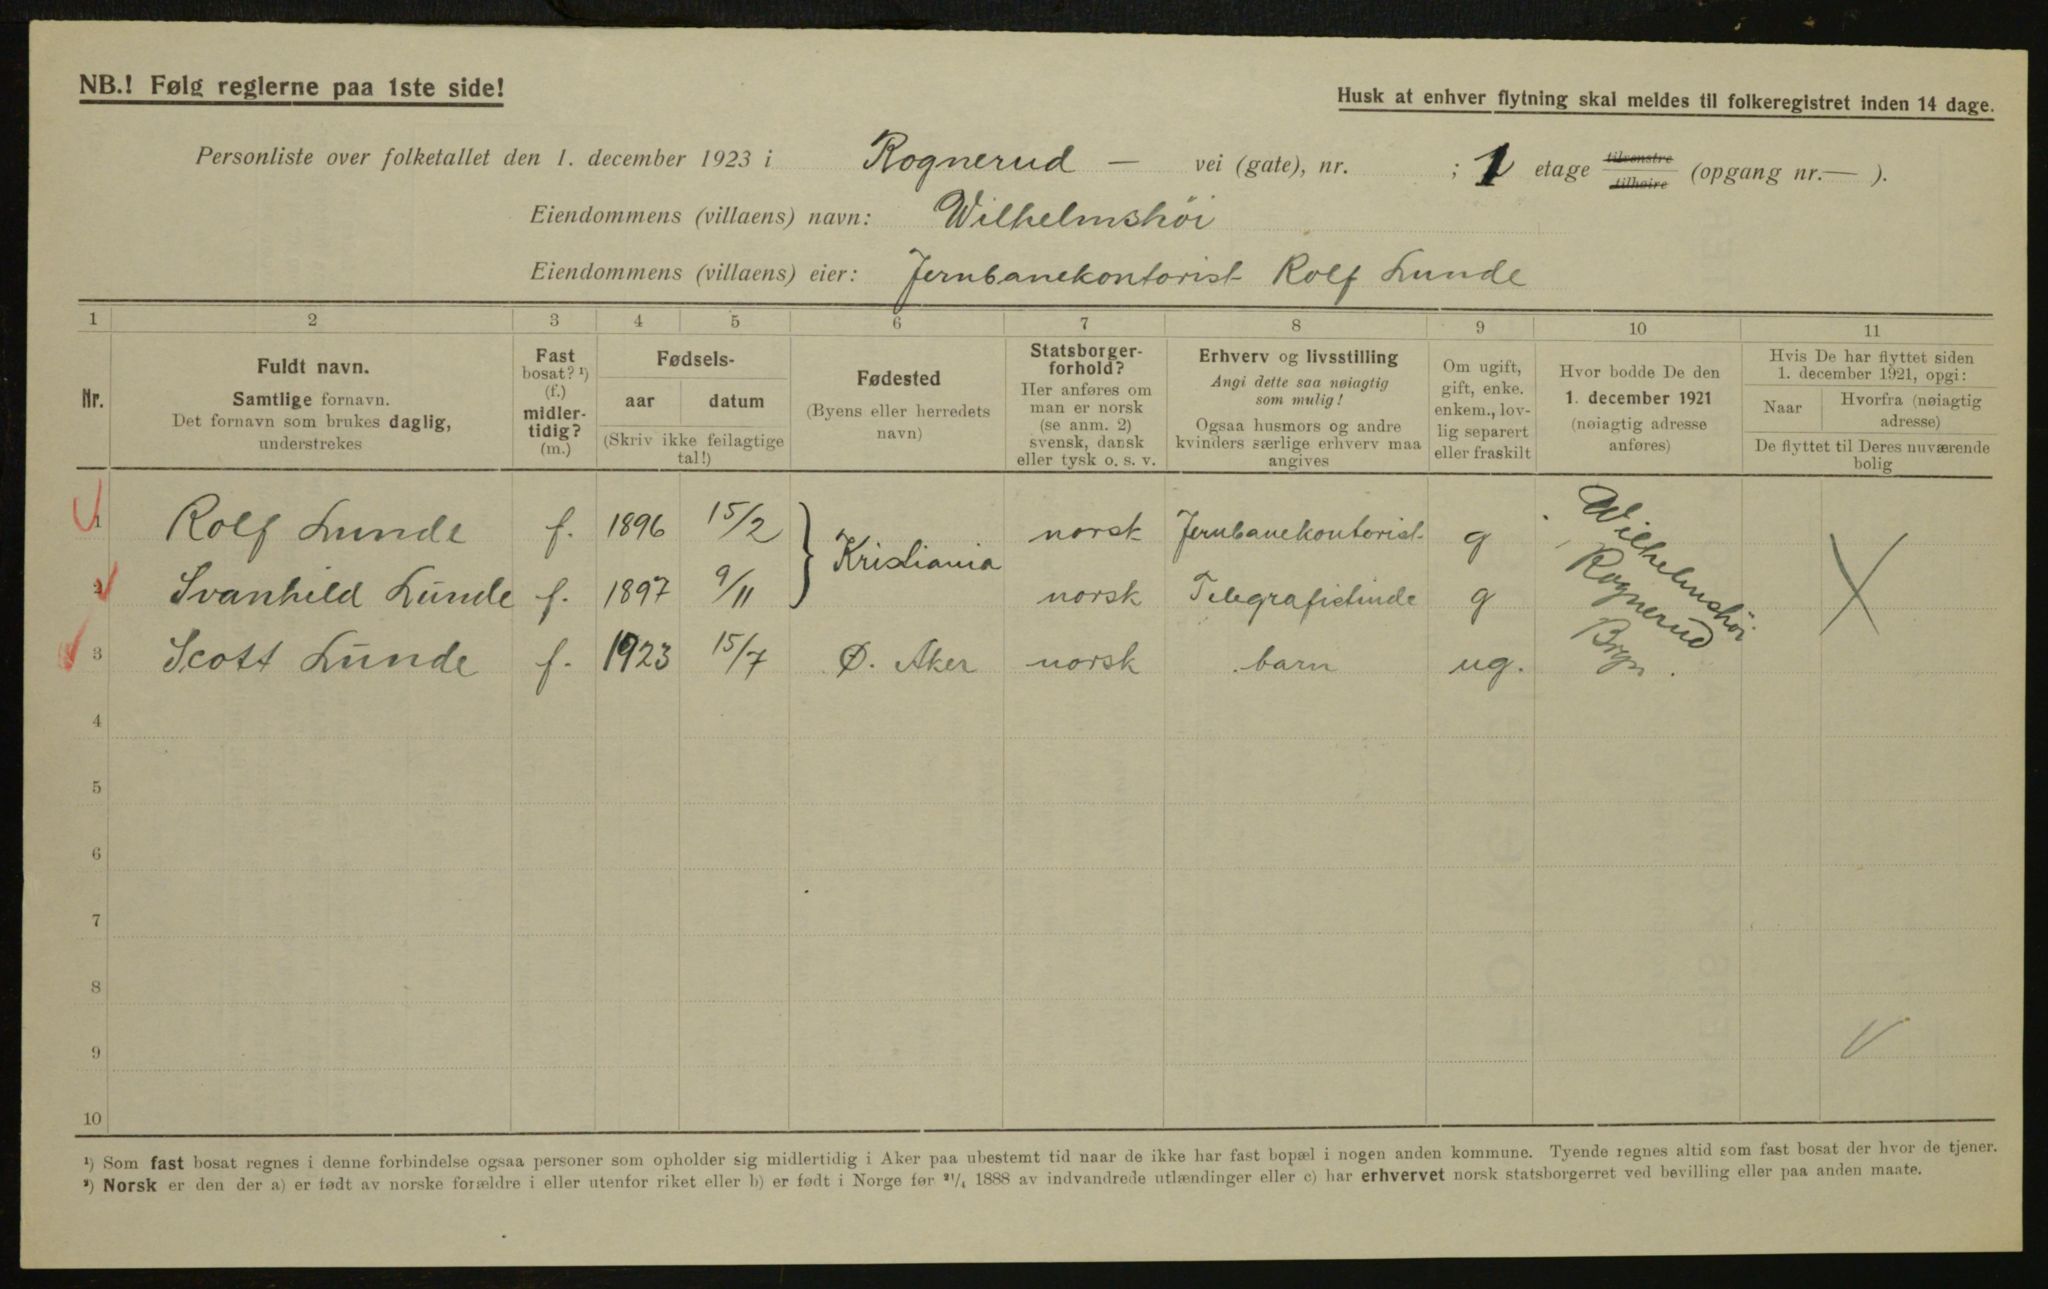 NB.! Følg reglerne paa 1ste side!
Husk at enhver flytning skal meldes til folkeregistret inden 14 dage.
Personliste over folketallet den 1. december 1923 i Rognerud — vei (gate), nr. ; 1 etage tilvenstre tilhøire (opgang nr. — ).
Eiendommens (villaens) navn: Wilhelmshöi
Eiendommens (villaens) eier: Jernbanekontorist Rolf Lunde
1 2 3 4 5 6 7 8 9 10 11
Nr.
Fuldt navn.
Samtlige fornavn.
Det fornavn som brukes daglig,
understrekes
Fast
bosat? ¹)
(f.)
midler-
tidig?
(m.)
Fødsels-
aar datum
(Skriv ikke feilagtige
tal!)
Fødested
(Byens eller herredets
navn)
Statsborger-
forhold?
Her anføres om
man er norsk
(se anm. 2)
svensk, dansk
eller tysk o. s. v.
Erhverv og livsstilling
Angi dette saa nøiagtig
som mulig!
Ogsaa husmors og andre
kvinders særlige erhverv maa
angives
Om ugift,
gift, enke.
enkem., lov-
lig separert
eller fraskilt
Hvor bodde De den
1. december 1921
(nøiagtig adresse
anføres)
Hvis De har flyttet siden
1. december 1921, opgi:
Naar
Hvorfra (nøiagtig
adresse)
De flyttet til Deres nuværende
bolig
1 Rolf Lunde f. 1896 15/2 Kristiania norsk Jernbanekontorist g
2 Svanhild Lunde f. 1897 9/11 norsk Telegrafistinde g
3 Scott Lunde f. 1923 15/7 Ø. Aker norsk barn ug.
Wilhelmshöi
Rognerud
Bryn.
4
5
6
7
8
9
10
¹) Som fast bosat regnes i denne forbindelse ogsaa personer som opholder sig midlertidig i Aker paa ubestemt tid naar de ikke har fast bopæl i nogen anden kommune. Tyende regnes altid som fast bosat der hvor de tjener.
²) Norsk er den der a) er født av norske forældre i eller utenfor riket eller b) er født i Norge før ²¹/₄ 1888 av indvandrede utlændinger eller c) har erhvervet norsk statsborgerret ved bevilling eller paa anden maate.